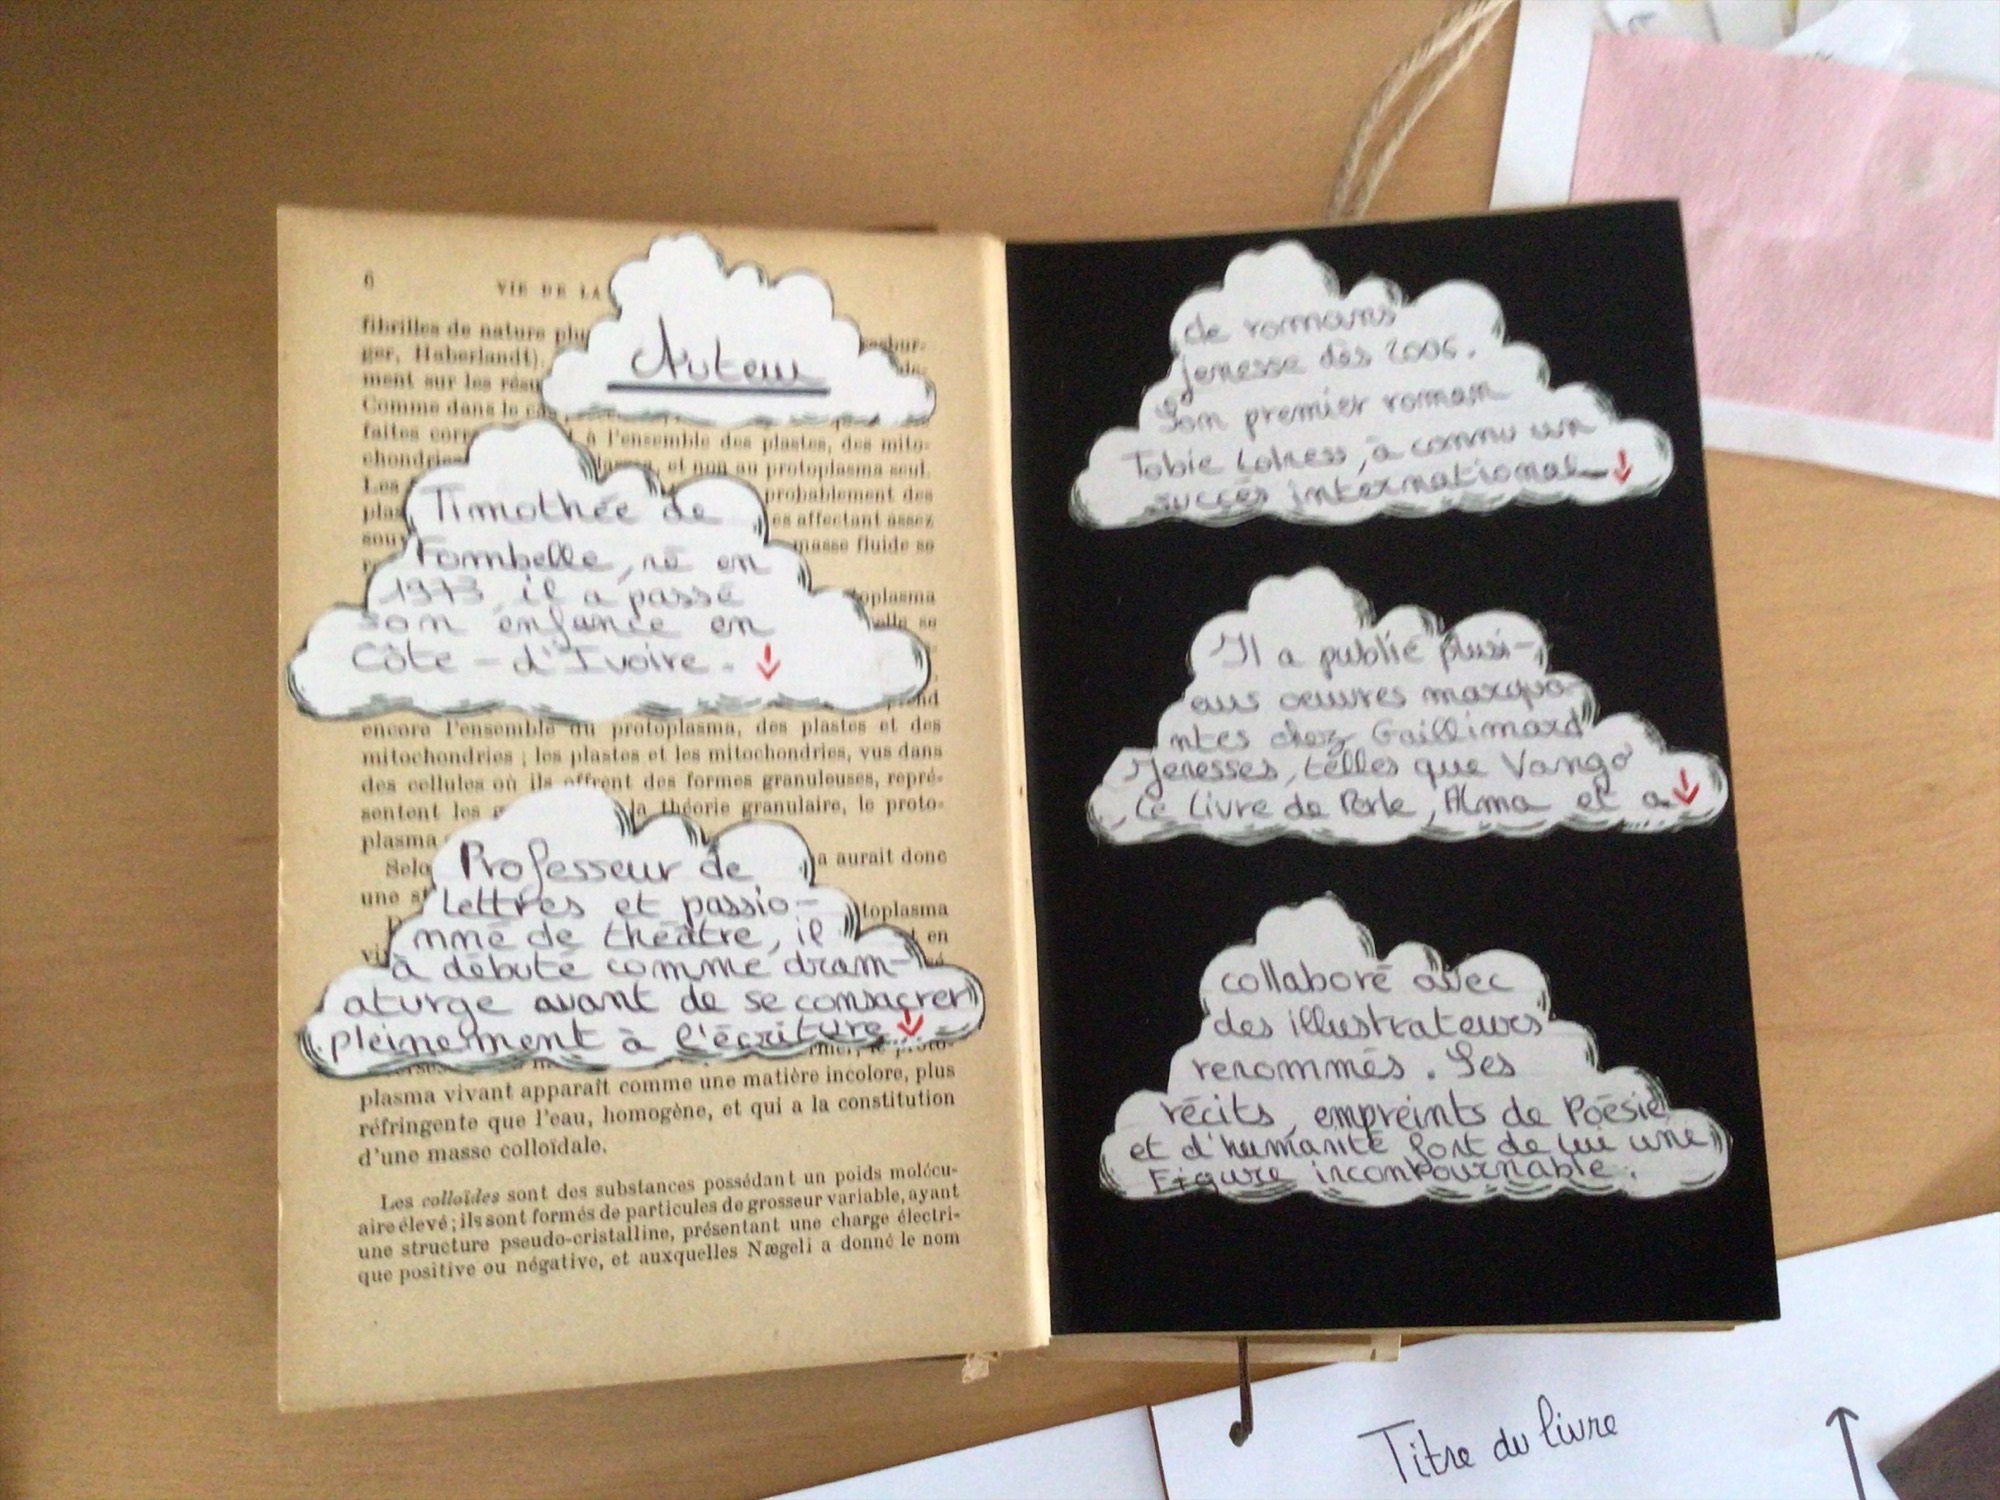 6
VIE DE LA
fibrilles de nature plu
ger, Haberlandt).
ment sur les résu
Comme dans le ca
faites corr à l'ensemble des plastes, des mito-
chondries et non au protoplasma seul.
Les probablement des
plas es affectant assez
souv masse fluide se
toplasma
elle se
Auteur
Timothée de
Fombelle, né en
1973, il a passé
son enfance en
Côte - d'Ivoire. ↓
encore l'ensemble du protoplasma, des plastes et des
mitochondries ; les plastes et les mitochondries, vus dans
des cellules où ils offrent des formes granuleuses, repré-
sentent les g la théorie granulaire, le proto-
plasma
Selo a aurait donc
une st
toplasma
en
Professeur de
Lettres et passio-
nné de théâtre, il
à débuté comme dram-
aturge avant de se consacrer
pleinement à l'écriture ↓
plasma vivant apparaît comme une matière incolore, plus
réfringente que l'eau, homogène, et qui a la constitution
d'une masse colloïdale.
Les colloïdes sont des substances possédant un poids molécu-
aire élevé ; ils sont formés de particules de grosseur variable, ayant
une structure pseudo-cristalline, présentant une charge électri-
que positive ou négative, et auxquelles Nægeli a donné le nom
de romans
jenesse dès 2006.
Son premier roman
Tobie Lolness, à connu un
succès international ↓
Il a publié plusi-
eurs oeuvres marqua-
ntes chez Gaillimard
Jenesses, telles que Vango
, Le Livre de Perle, Alma et a ↓
collaboré avec
des illustrateurs
renommés. Ses
récits, empreints de Poésie
et d'humanité font de lui une
Figure incontournable.
Titre du livre